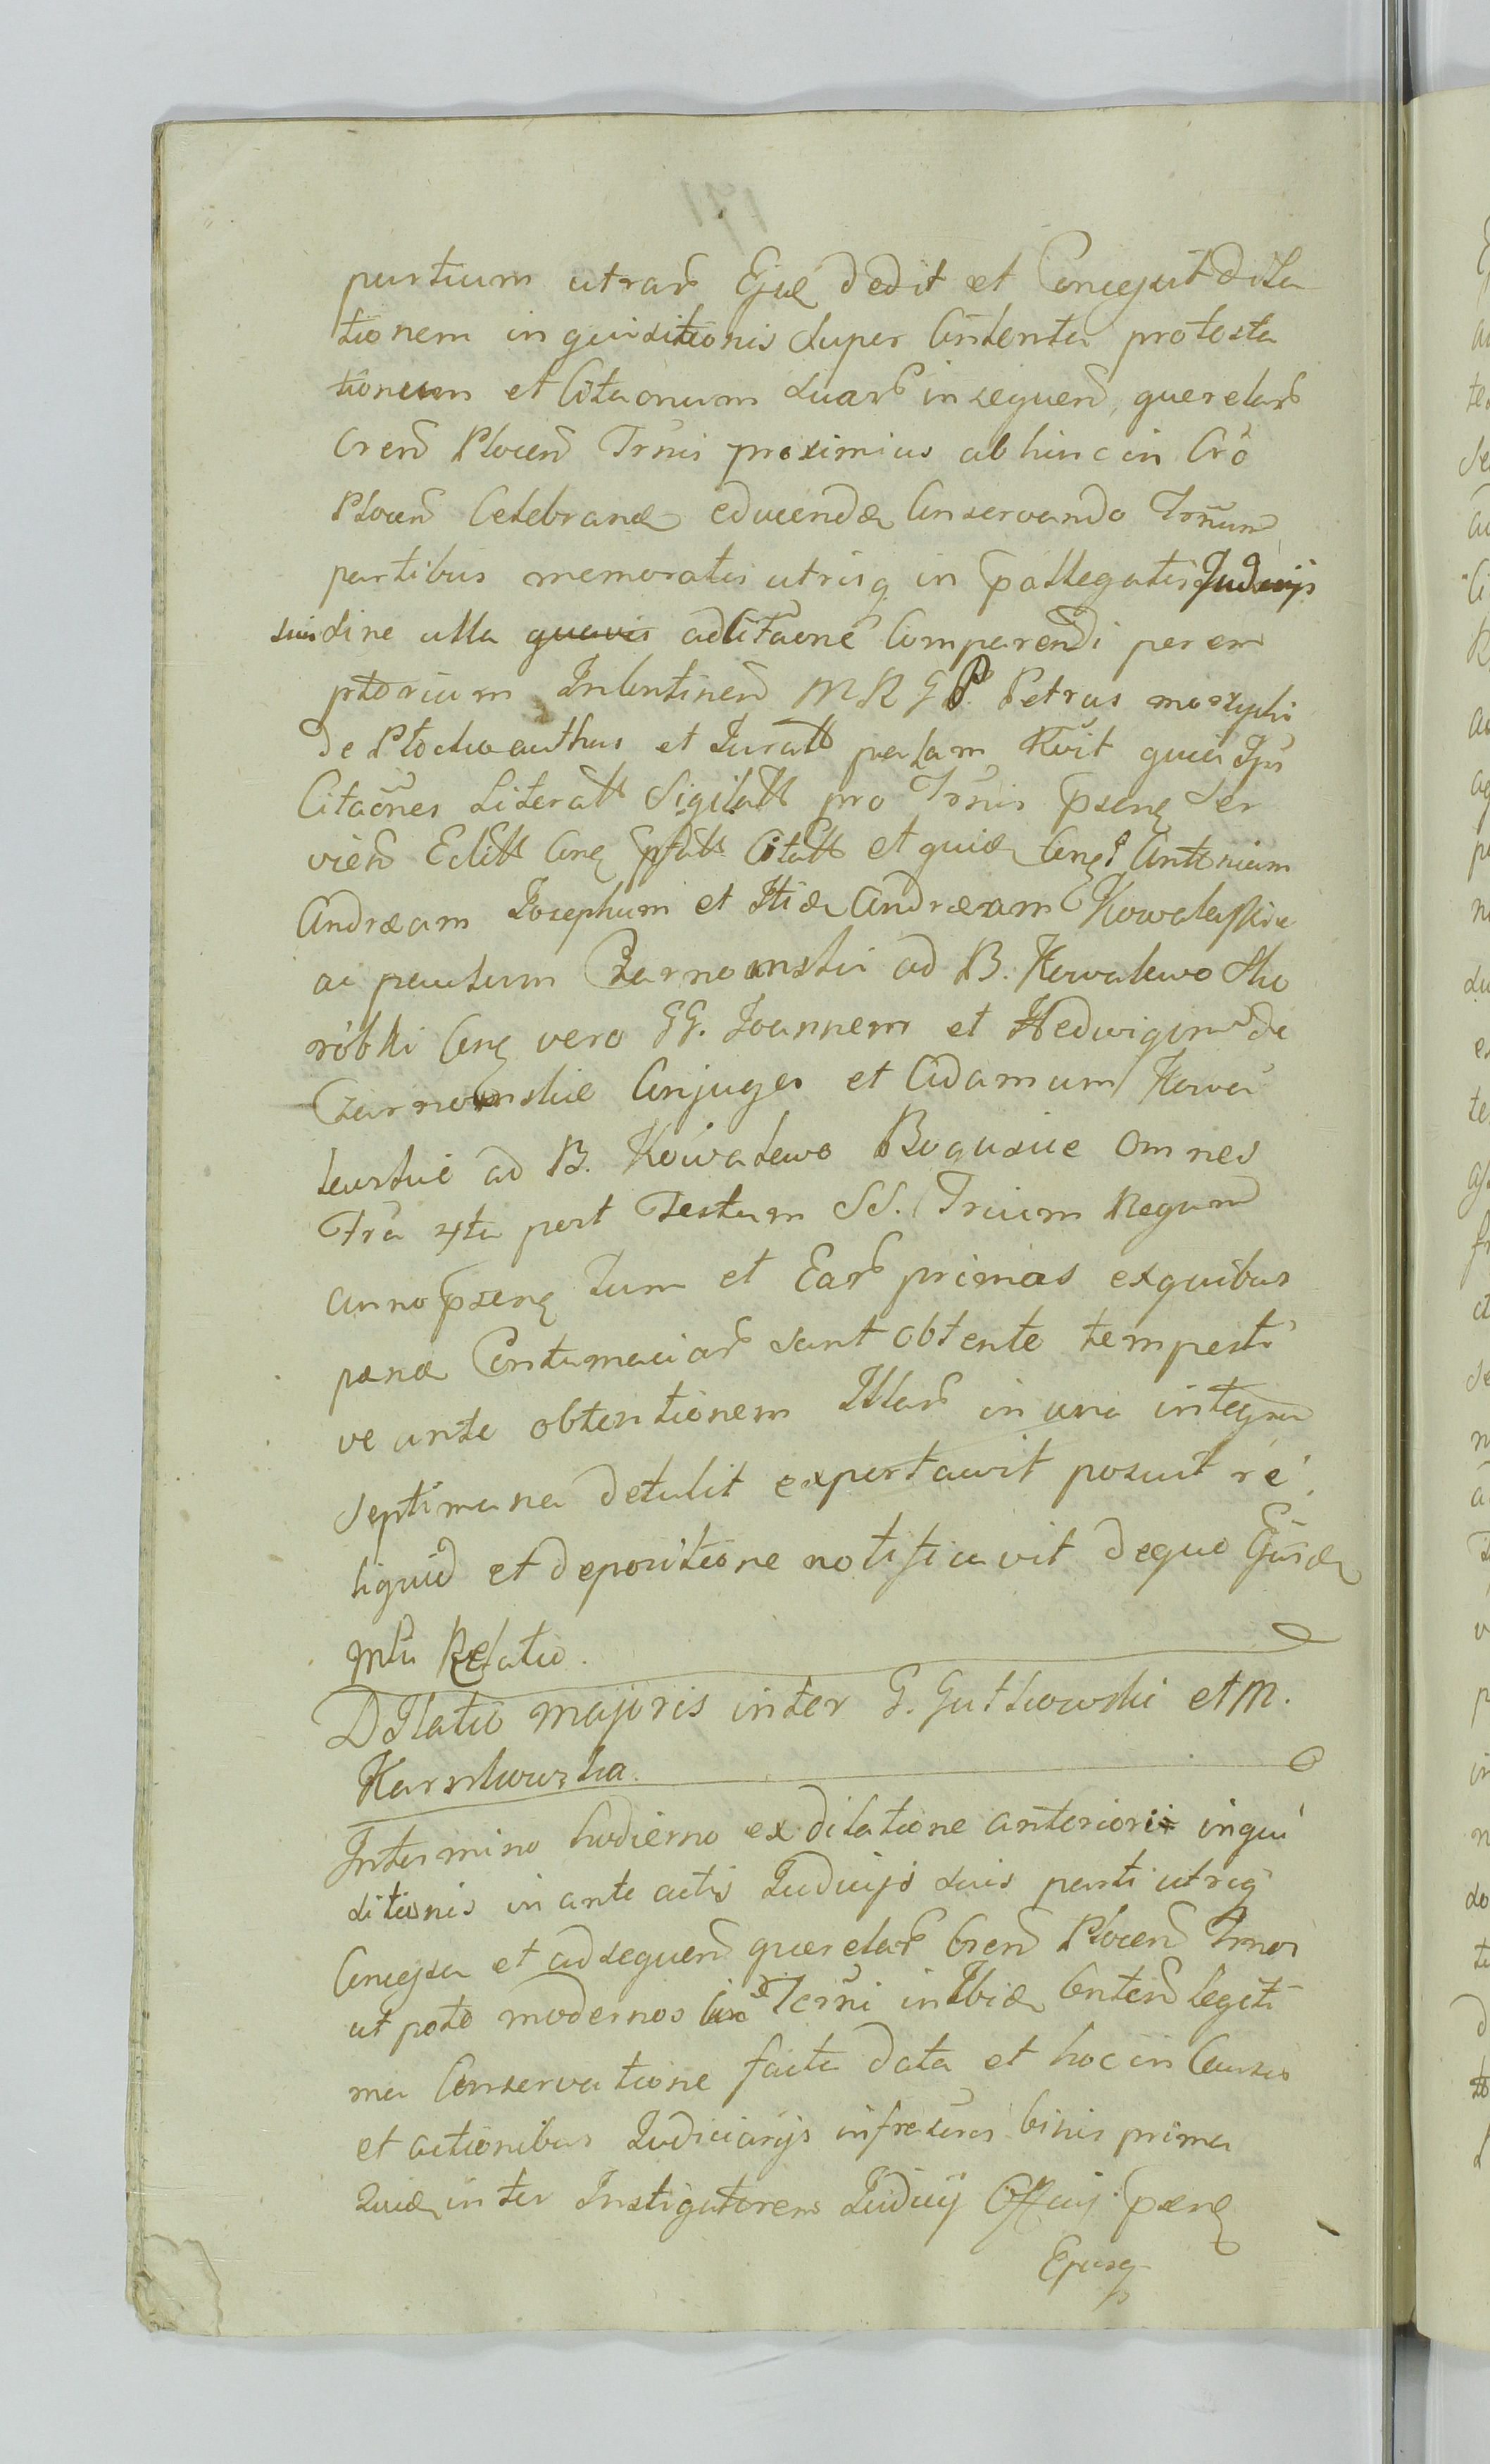 partium utrar Ejusd dedit et Concessit dila
tionem inquisitionis super Contenta protesta
tionum et Citaonum suar in sequen querelar
Cren Plocen Trnis proximius abhinc in Cro
Plocen Celebrand educenda Conservando Trnum
partibus memoratis utrisq in pallegatis Judicijs
suis sine ulla quavis adcitaone Comparendi perem
ptorium In Continen M R G P. Petrus
de Plocko authus et Juratt palam Rvit quia Ipse
Citaones Literatt Sigilatt pro Trnis psenq Ser
vien Editt Cong pfatt Citatt et quid Cong Antonium
Andræam Josephum et Itid Andræam Kowalewskie
ac paulum Czarnomski ad B. Kowalewo Sko
robki Cong vero GG. Joannem et Hedwigim de
Czarnomskie Conjuges et Adamum Kowa
lewskie ad B. Kowalewo Bogusuie omnes
Fra 4ta post Festum SS. Trium Regum
anno psenq tum et Ear primas exquibus
pænæ Contumaciar sunt obtente tempesti
ve ante obtentionem Illar in una integra
septimana detulit exportavit posuit re
liquid et depositione notificavit dequo Ejusd
Mli Relatio.
Dilatio majoris inter G. Gutkowski et M.
Karnkowska
In termino hodierno ex dilatione anteriori inqui
sitionis in ante actis Judicijs suis parti utriq
Concessa et ad sequen querelar Cren Plocen Trnos
ut pote modernos Terni in Ibid Conten legiti
ma Conservatione facta data et hoc in Causis
et actionibus Judiciarijs infrascris binis prima
Quid inter Instigatorem Judicij Officij psenq
Ejusq